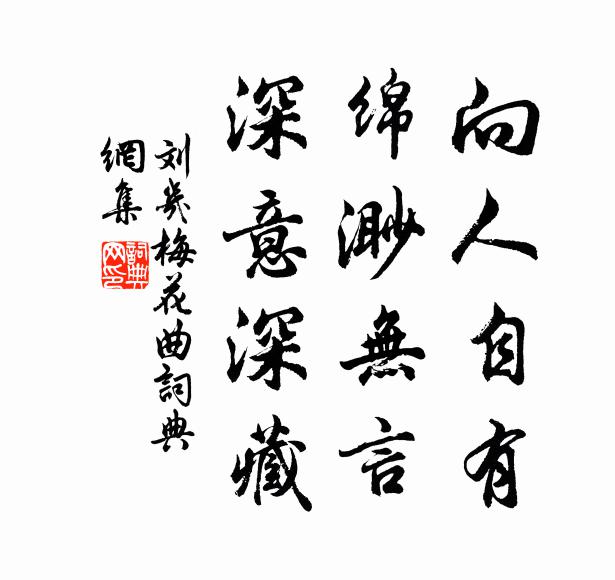 向人自有
綿渺無言
深意深藏
刘幾梅花曲詞典
網集
詞典
网印